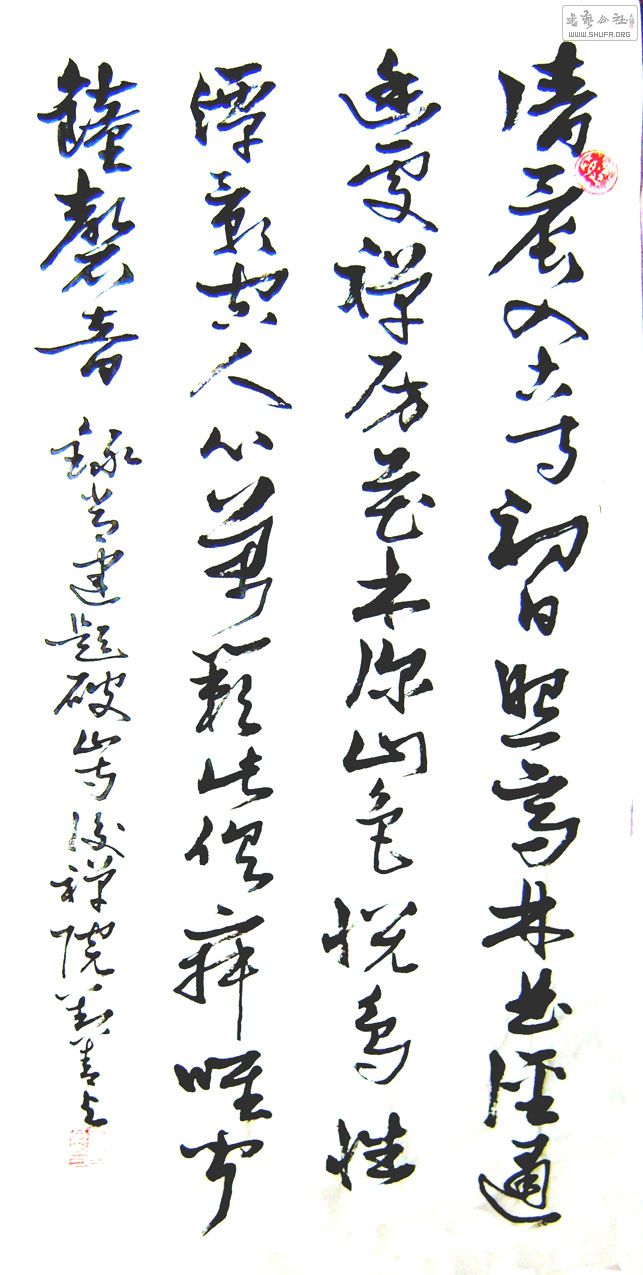 書藝公社
WWW.SHUFA.ORG
清晨入古寺初日照高林曲徑通
幽處禪房花木深山色悦鳥性
潭影空人心萬籟此俱寂唯聞
鐘磬音
錄常建題破山寺後禪院